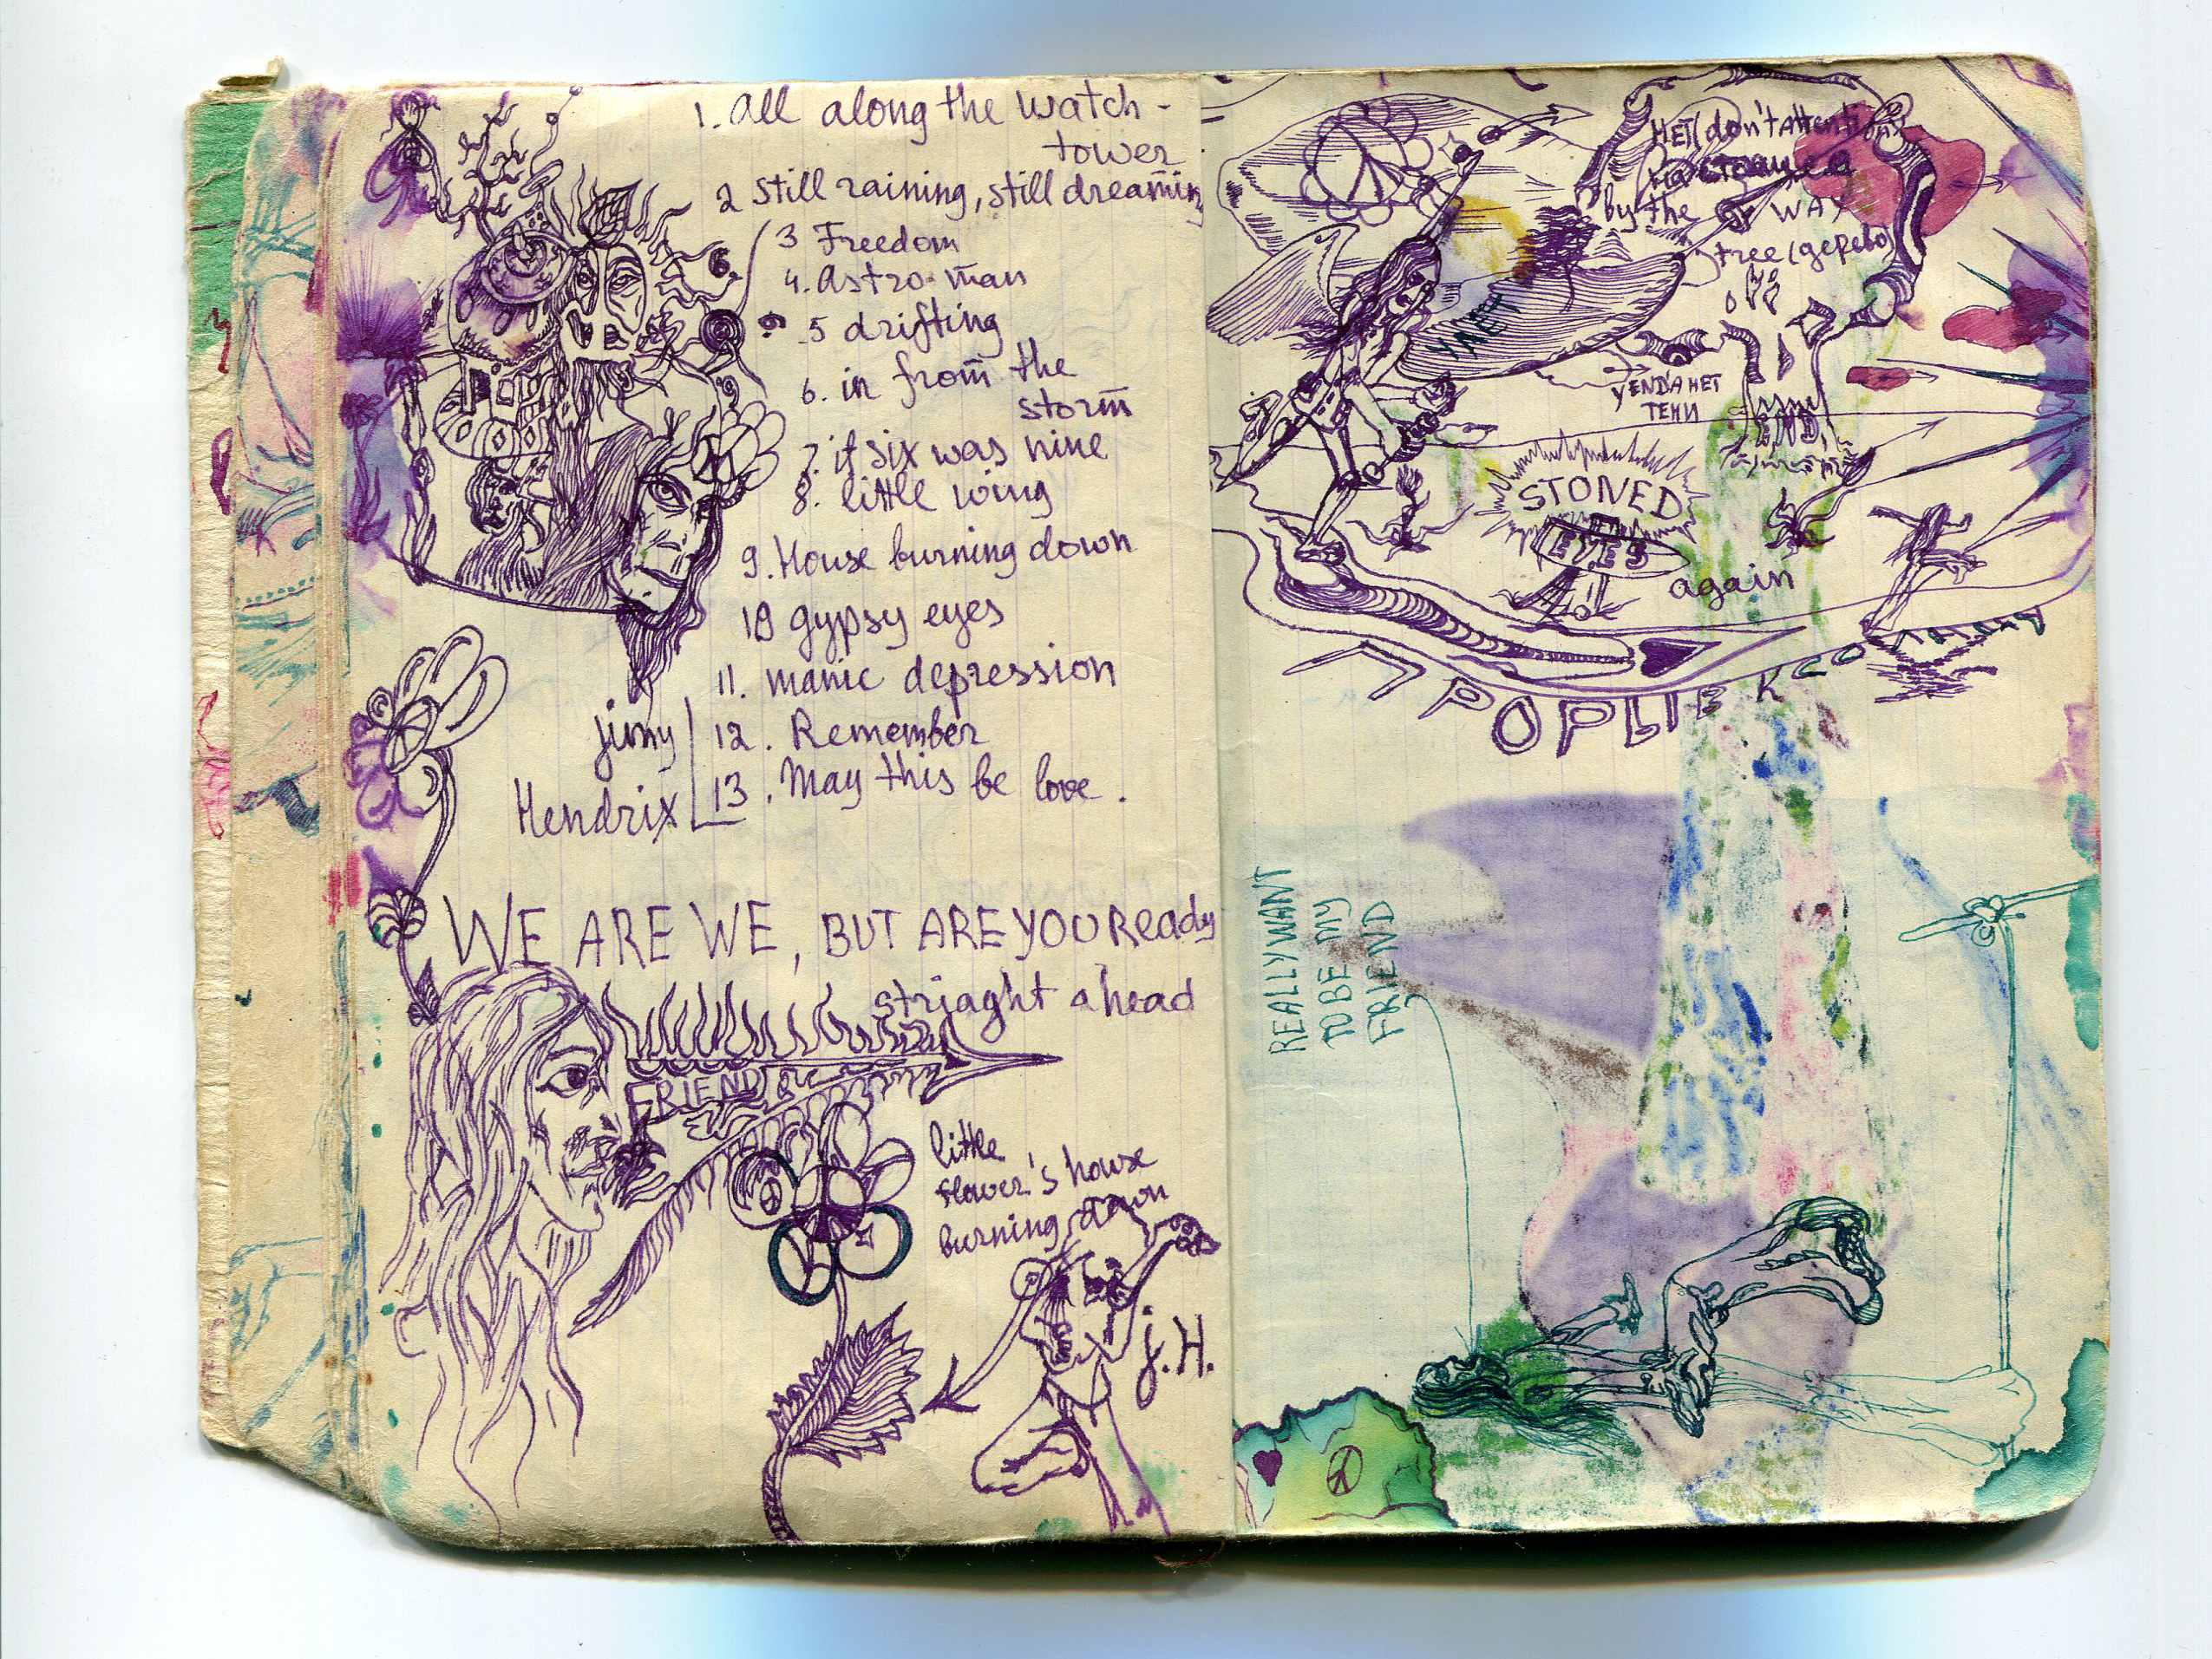 1. All along the watch-
tower
2 Still raining, still dreaming
3 Freedom
4. Astro-man
5 drifting
6. in from the
storm
7. if six was nine
8. little wing
9. House burning down
10 gypsy eyes
11. manic depression
12. Remember
13. May this be love.
jimy
Hendrix
WE ARE WE, BUT ARE YOU Ready
striaght ahead
FRIEND
little
flower's house
burning down
j.H.
6.
9
НЕТ (don't
by the WAY
tree (gepebo)
У END'А НЕТ
ТЕНИ
END
STONED
EYES
again
REALLY WANT
TO BE MY
FRIEND